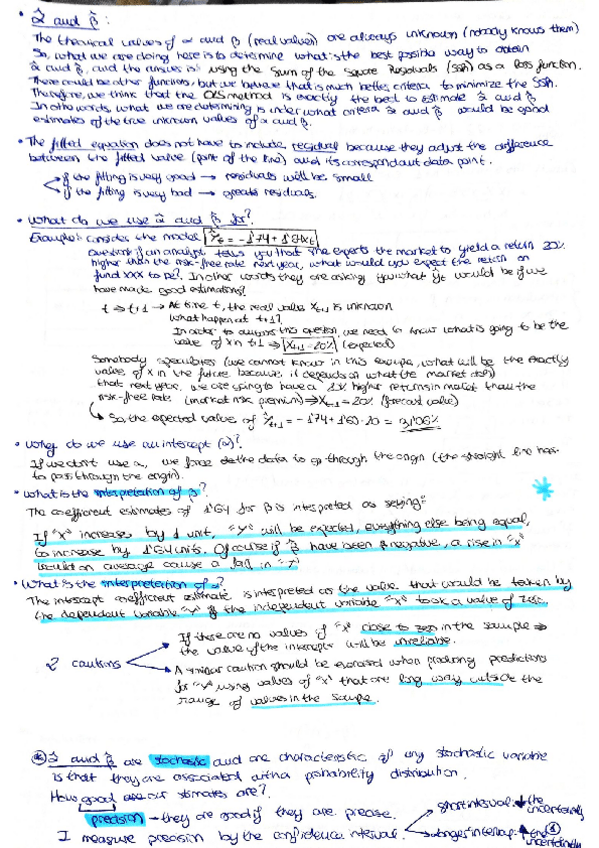 • α̂ and β̂ :
The theorical values of α and β (real values) are always unknown (nobody knows them)
So, what we are doing here is to determine what is the best possible way to obtain
α̂ and β̂, and the answer is: using the Sum of the Square Residuals (SSR) as a loss function.
There could be other functions, but we believe that is much better criteria to minimize the SSR.
Therefore, we think that the OLS method is exactly the best to estimate α̂ and β̂
In other words, what we are determining is under what criteria α̂ and β̂ would be good
estimates of the true unknown values of α and β.
• The fitted equation does not have to include residual because they adjust the difference
between the fitted value (point of the line) and its correspondant data point.
if the fitting is very good → residuals will be small
if the fitting is very bad → greats residuals.
• What do we use α̂ and β̂ for?
Example: consider the model Ŷt = -1'74 + 1'64xt
Question: if an analyst tells you that she expects the market to yield a return 20%
higher than the risk-free rate next year, what would you expect the return on
fund XXX to be? In other words they are asking you what ŷt would be if we
have made good estimating?
t → t+1 → At time t, the real value Xt+1 is unknown
What happen at t+1?
In order to this question, we need to know what is going to be the
value of x in t+1 ⇒ Xt+1 = 20% (expected)
Somebody speculates (we cannot know in this example, what will be the exactly
value of x in the future because it depends on what the market do)
that next year, we are going to have a 20% higher returns in market than the
risk-free rate (market risk premium) ⇒ Xt+1 = 20% (forecast value)
↳ So the expected value of Ŷt+1 = -1'74 + 1'64·20 = 31'06%
• Why do we use an intercept (α)?
If we don't use α, we force the data to go through the origin (the straight line has
to pass through the origin).
• What is the interpretation of β?
The coefficient estimates of 1'64 for β is interpreted as saying:
If "x" increases by 1 unit, "y" will be expected, everything else being equal,
to increase by 1'64 units. Of course if β̂ have been a negative, a rise in "x"
would on average cause a fall in "y"
• What is the interpretation of α?
The intercept coefficient estimate is interpreted as the value that would be taken by
the dependent variable "y" if the independent variable "x" took a value of zero.
2 cautions
If these are no values of "x" close to zero in the sample ⇒
the value of the intercept will be unreliable.
A similar caution should be exercised when producing predictions
for "y" using values of "x" that are long way outside the
range of values in the sample.
* α̂ and β̂ are stochastic and one characteristic of any stochastic variable
is that they are associated with a probability distribution.
How good are our stimates are?
precision → they are good if they are precise.
I measure precision by the confidence interval.
short interval: ↓ the uncertainty
longer interval: ↑ the uncertainty
1